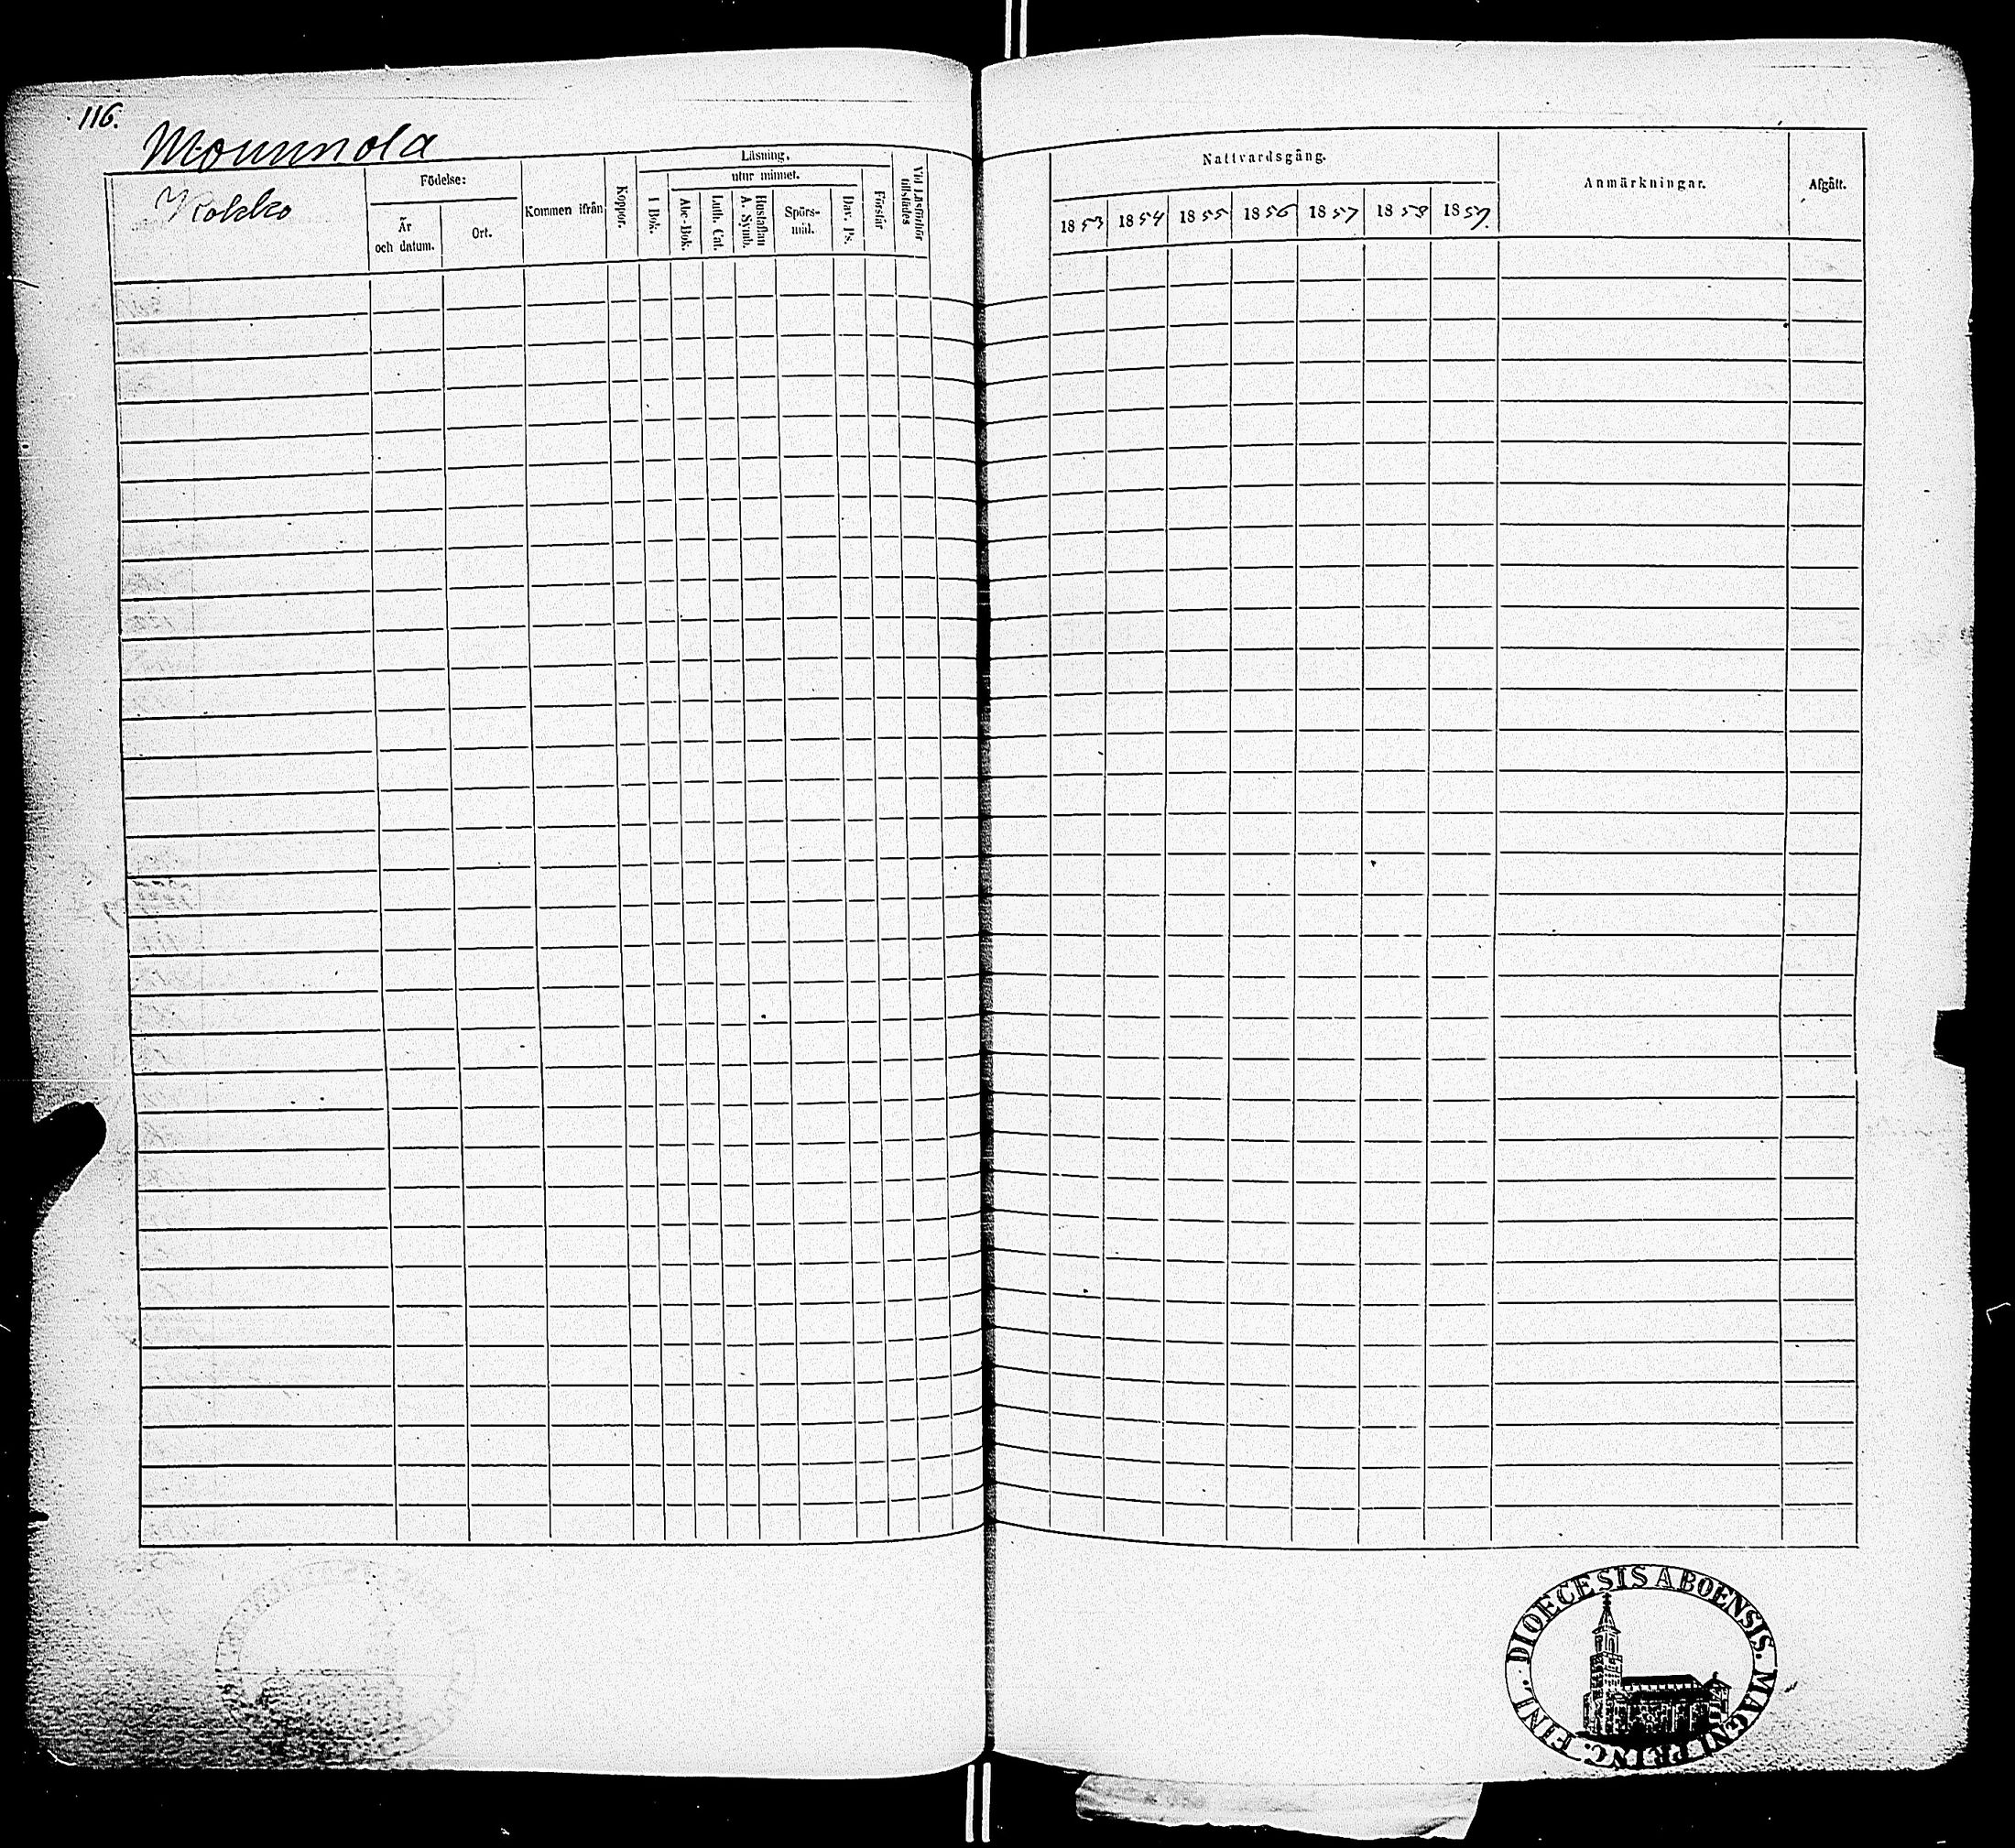 116.
Mounnola
Kokko
Födelse:
År och datum.
Ort.
Kommen ifrån
Koppor.
Läsning.
I Bok.
utur minnet.
Abc-Bok.
Luth. Cat.
Hustaflan
A. Symb.
Spörs-
mål.
Dav. Ps.
Förstår
Vid Läsförhör
tillstädes
Nattvardsgång.
1853 1854 1855 1856 1857 1858 1859.
Anmärkningar.
Afgått.
DIOECESIS ABOENSIS. MAGNI PRINC. FINL.